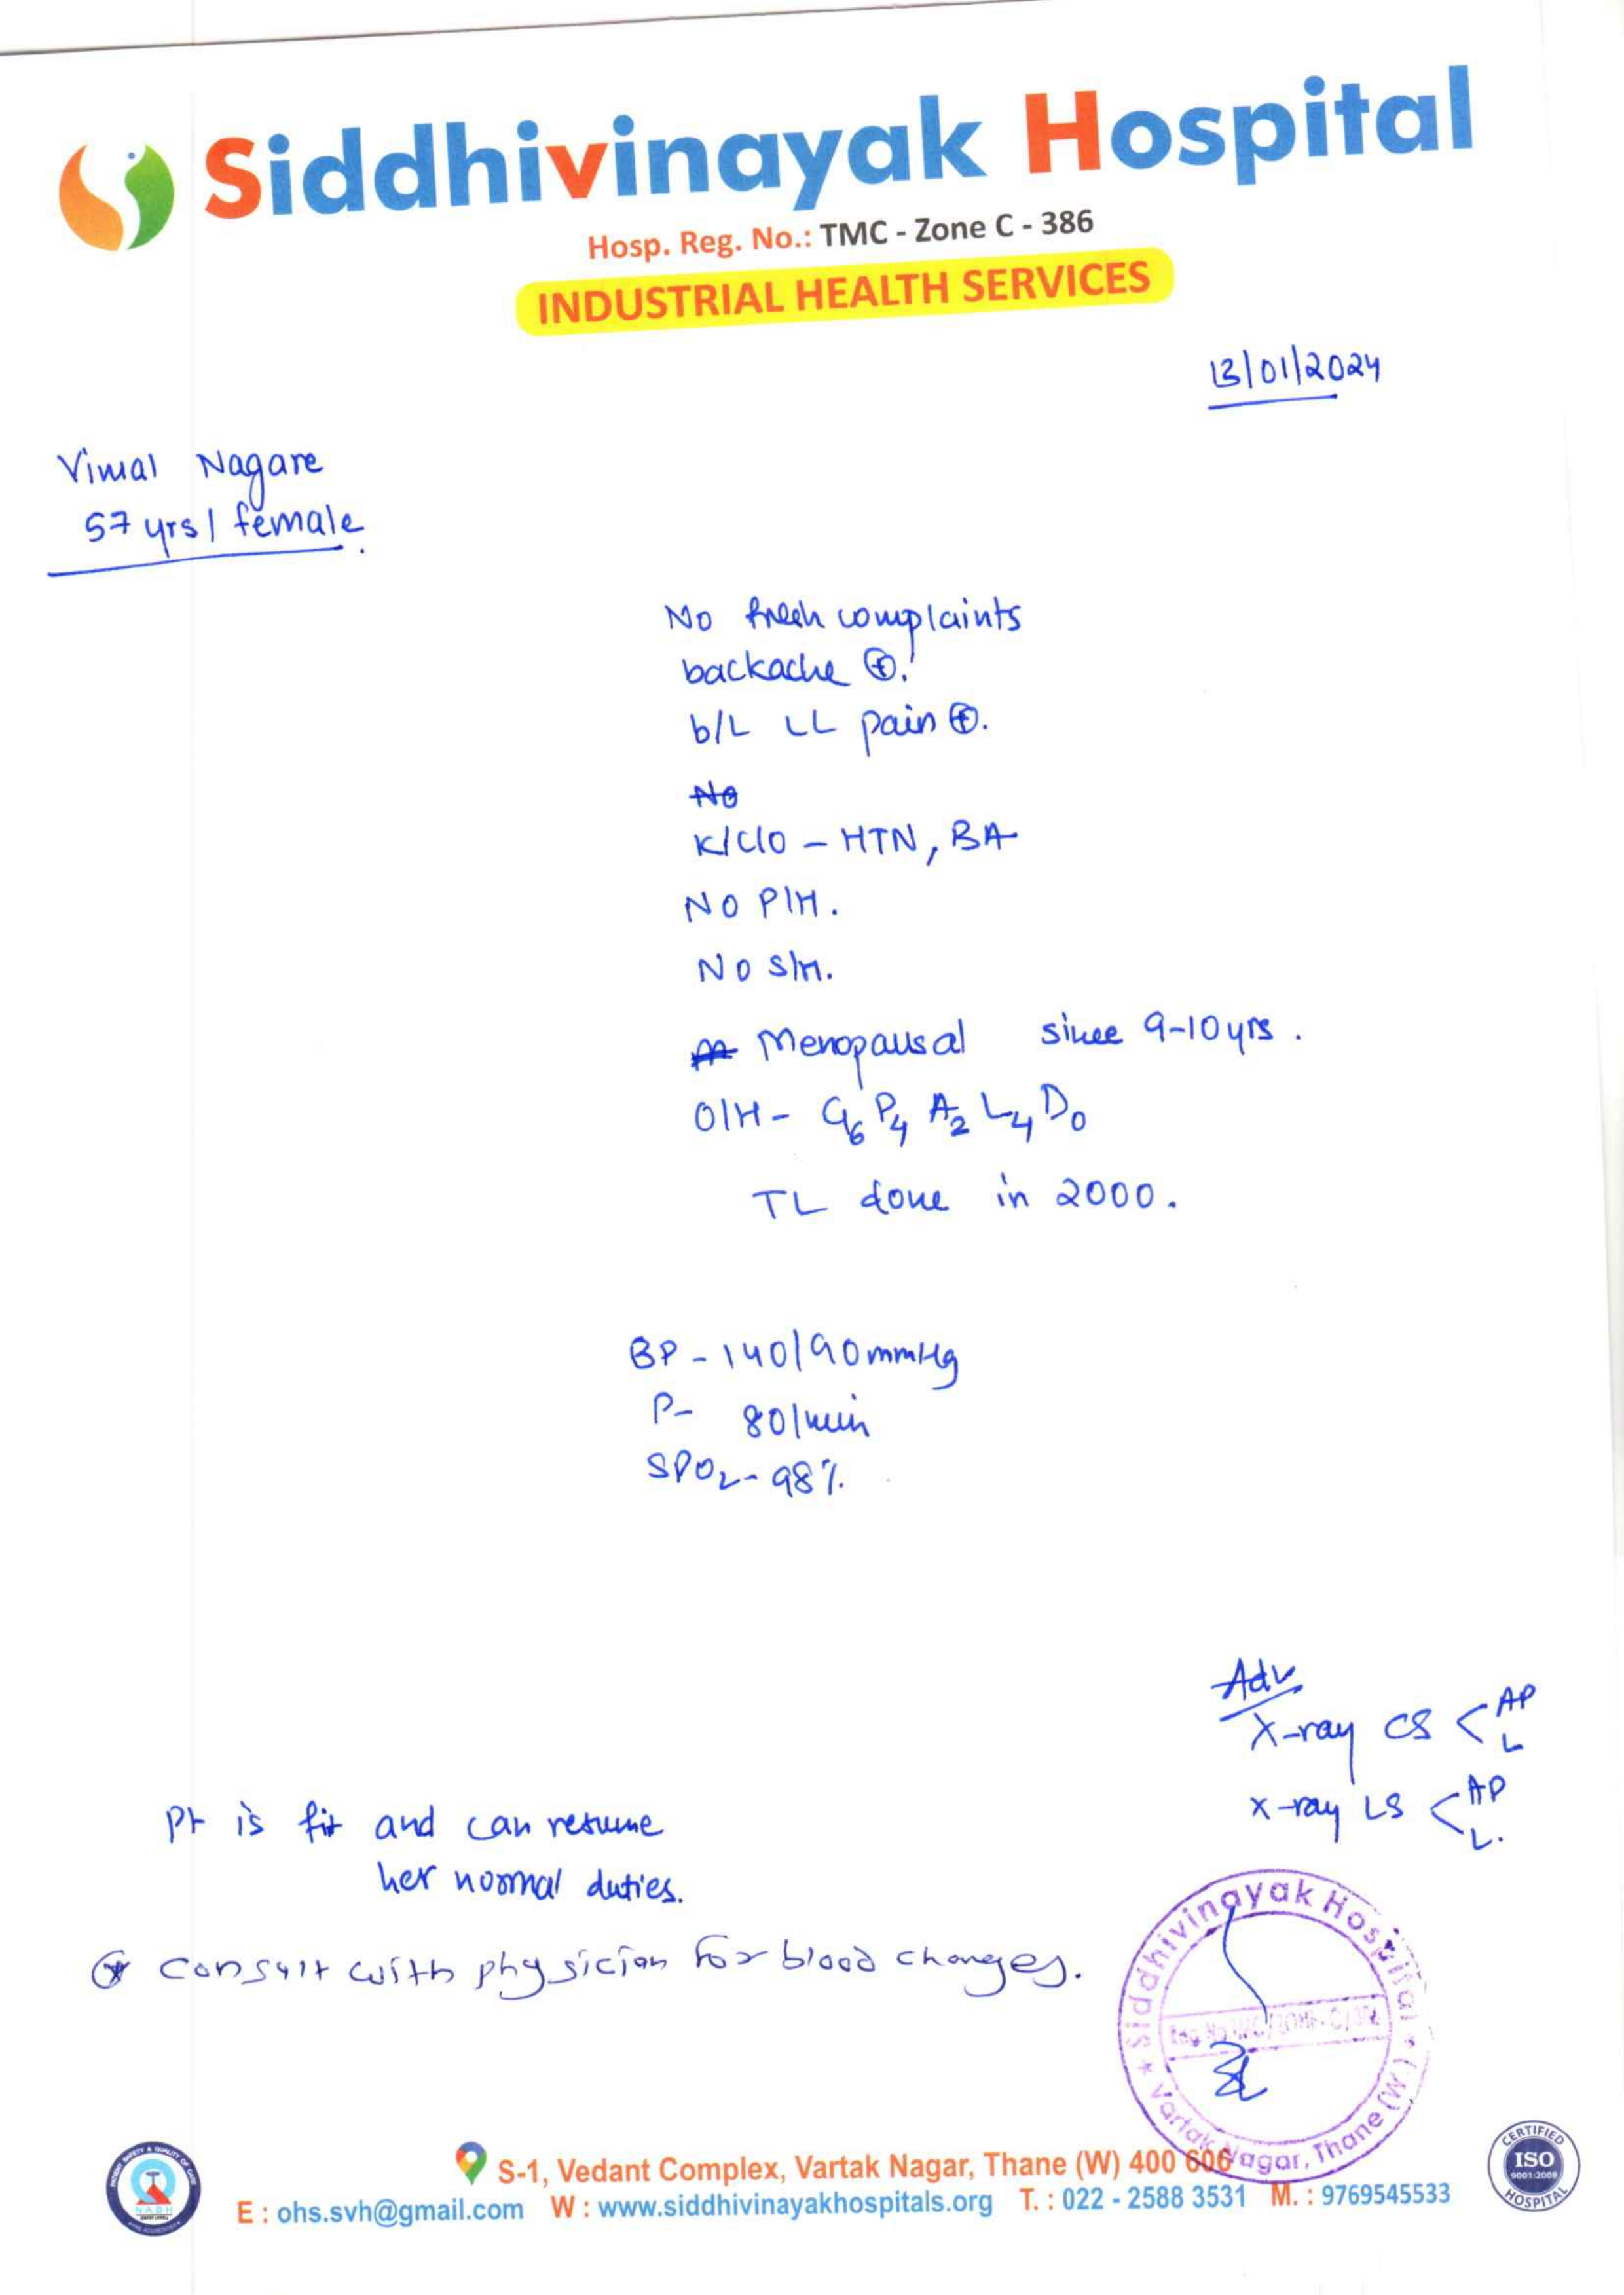 Siddhivinayak Hospital
Hosp. Reg. No.: TMC - Zone C - 386
INDUSTRIAL HEALTH SERVICES
13/01/2024
Vimal Nagare
57 yrs / female.
No fresh complaints
backache ⊕.
b/L LL pain ⊕.
No
K/C/O - HTN, BA
NO P/H.
NO S/H.
Menopausal since 9-10 yrs.
O/H - G6 P4 A2 L4 D0
TL done in 2000.
BP - 140/90 mmHg
P- 80/min
SPO2 - 98%.
Adv
X-ray CS < AP
L
X-ray LS < AP
L.
Pt is fit and can resume
her normal duties.
consult with physician for blood changes.
Siddhivinayak Hospital
Vartak Nagar, Thane (W)
S-1, Vedant Complex, Vartak Nagar, Thane (W) 400 606
E : ohs.svh@gmail.com W : www.siddhivinayakhospitals.org T. : 022 - 2588 3531 M. : 9769545533
NABH
CERTIFIED
ISO
9001:2008
HOSPITAL